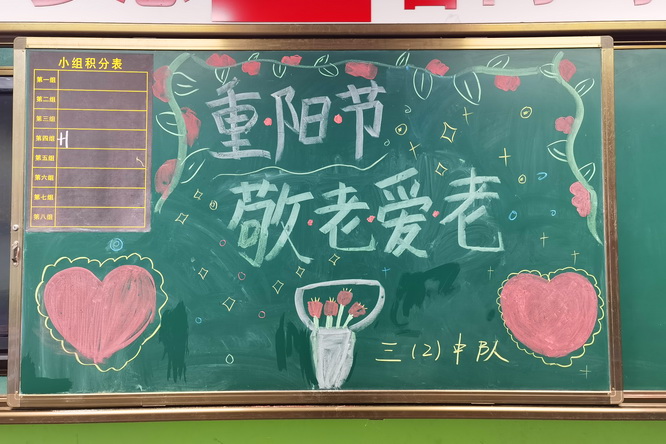 小组积分表
第一组
第二组
第三组
第四组
第五组
第六组
第七组
第八组
重阳节
敬老爱老
三(2)中队